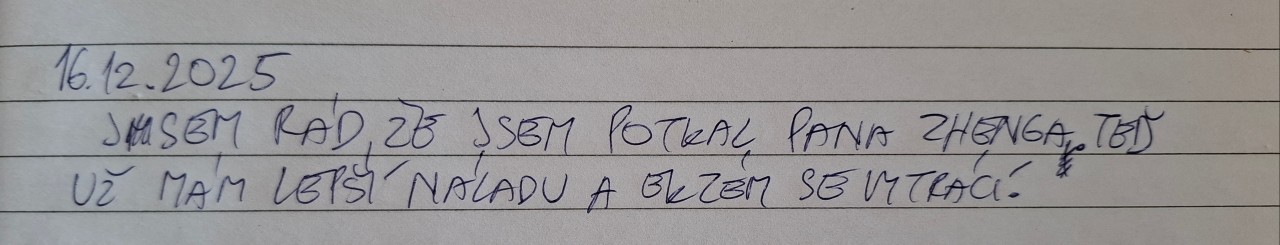 16.12.2025
JSEM RÁD, ŽE JSEM POTKAL PANA ZHENGA. TEĎ
UŽ MÁM LEPŠÍ NÁLADU A EKZÉM SE VYTRÁCÍ.